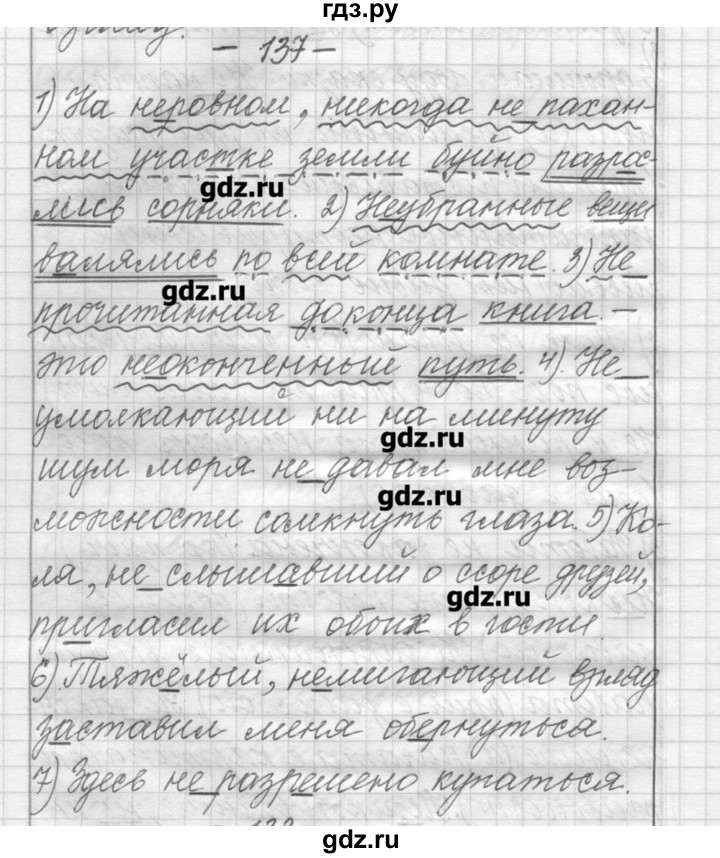 гдз.ру
– 137 –
1) На неровном, никогда не пахан-
ном участке земли буйно разрос-
лись сорняки. 2) Неубранные вещи
gdz.ru
валялись по всей комнате. 3) Не
gdz.ru
прочитанная до конца книга –
это неоконченный путь. 4) Не
умолкающий ни на минуту
gdz.ru
шум моря не давал мне воз-
gdz.ru
можности сомкнуть глаза. 5) Ко-
ля, не слышавший о ссоре друзей,
gdz.ru
пригласил их обоих в гости.
6) Тяжёлый, немигающий взгляд
заставил меня обернуться.
7) Здесь не разрешено купаться.
gdz.ru